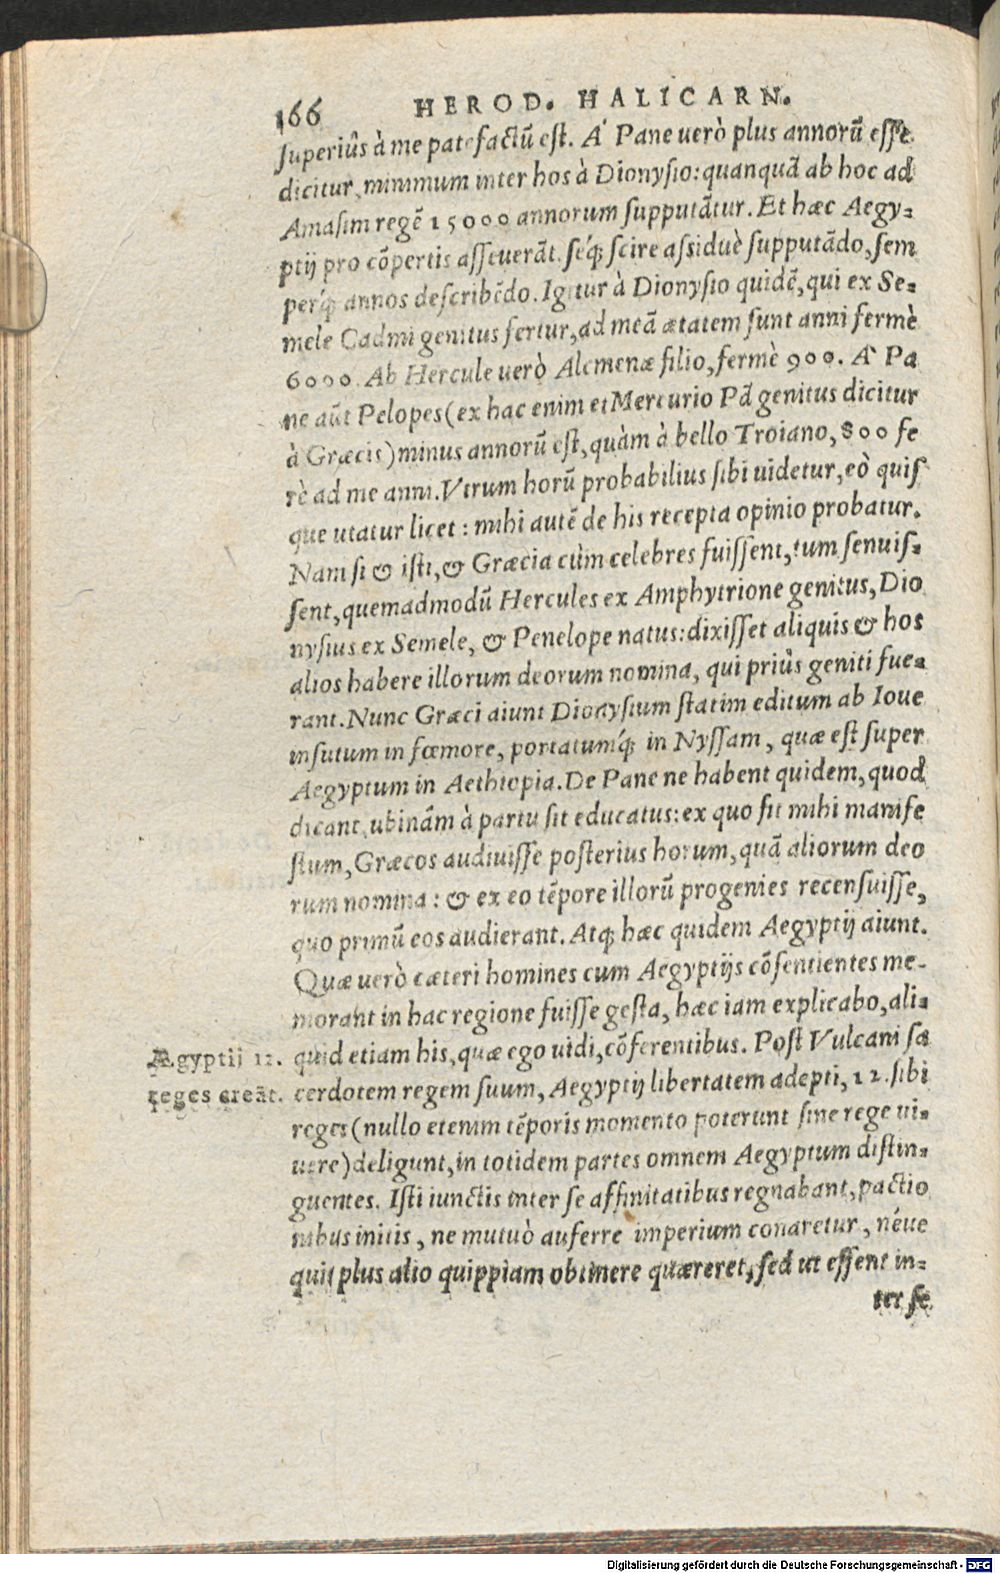 166 HEROD. HALICARN.
superiùs à me patefactũ est. A' Pane uerò plus annorũ esse
dicitur, minimum inter hos à Dionysio: quanquã ab hoc ad
Amasim regẽ 15000 annorum supputãtur. Et hæc Aegy-
ptij pro cõpertis asseuerãt. seq́; scire assiduè supputãdo, sem
perq́; annos describẽdo. Igitur à Dionysio quidẽ, qui ex Se-
mele Cadmi genitus fertur, ad meã ætatem sunt anni fermè
6000. Ab Hercule uerò Alcmenæ filio, fermè 900. A` Pa
ne aũt Pelopes (ex hac enim et Mercurio Pã genitus dicitur
à Græcis) minus annorũ est, quàm à bello Troiano, 800 fe
rè ad me anni. Vtrum horũ probabilius sibi uidetur, eò quis
que utatur licet: mihi autẽ de his recepta opinio probatur.
Nam si & isti, & Græcia cùm celebres fuissent, tum senuis-
sent, quemadmodũ Hercules ex Amphytrione genitus, Dio
nysius ex Semele, & Penelope natus: dixisset aliquis & hos
alios habere illorum deorum nomina, qui priùs geniti fue-
rant. Nunc Græci aiunt Dionysium statim editum ab Ioue
insutum in fœmore, portatumq́; in Nyssam, quæ est super
Aegyptum in Aethiopia. De Pane ne habent quidem, quod
dicant, ubinã à partu sit educatus: ex quo fit mihi manife
stum, Græcos audiuisse posterius horum, quã aliorum deo
rum nomina: & ex eo tẽpore illorũ progenies recensuisse,
quo primũ eos audierant. Atq; hæc quidem Aegyptij aiunt.
Quæ uerò cæteri homines cum Aegyptijs cõsentientes me-
morant in hac regione fuisse gesta, hæc iam explicabo, ali-
Ægyptij 12. quid etiam his, quæ ego uidi, cõferentibus. Post Vulcani sa
reges creãt. cerdotem regem suum, Aegyptij libertatem adepti, 12. sibi
reges (nullo etenim tẽporis momento poterunt sine rege ui-
uere) deligunt, in totidem partes omnem Aegyptum distin-
guentes. Isti iunctis inter se affinitatibus regnabant, pactio
nibus initis, ne mutuò auferre imperium conaretur, néue
quis plus alio quippiam obtinere quæreret, sed ut essent in-
ter se
Digitalisierung gefördert durch die Deutsche Forschungsgemeinschaft - DFG